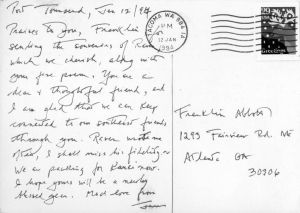 Port Townsend, Jan 12/94
Praises to you, Franklin
sending the souvenirs of
which we cherish, along with
your fine poem. You are a
dear & thoughtful friend, and
I am glad that we can keep
connected to our southeast friends
through you.
often, I shall miss his
We are packing for now.
I hope yours will be a
year. Much love from
TACOMA WA
PM
12 JAN
1994
29
Greetings
Franklin Abbott
1293 Fairview Rd. NE
Atlanta GA
30306